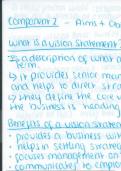 Component 2 - Aims + Ob
What is a vision statement?
Is a description of what a
term.
↳ it provides senior man
and helps to direct stra
↳ they define the core v
the business is heading
Benefits of a vision state
• provides a business wit
• helps in setting strateg
• focuses management on
• communicates to employ